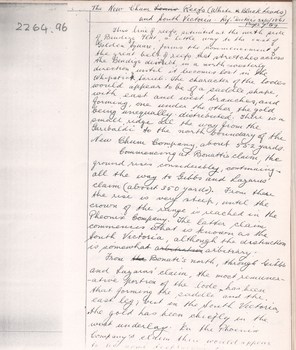 2264.96
The New Chum Reefs (Whim & Blockheads)
and South Victoria
This line of reefs, situated at the north side
of Bendigo Flat, a little way west of
Golden Square, forms the commencement of
the great belt of reefs that stretches across
the Bendigo district, in a north westerly
direction, until it becomes lost in the
Whipstick. The character of the lodes
would appear to be of a saddle shape,
with east and west branches, and
forming, one under the other, the gold
being unequally distributed. There is a
small ridge all the way from the
Garibaldi to the north boundary of the
New Chum Company, about 352 yards.
Commencing at Bonatti's claim, the
ground rises considerably, continuing
all the way to Gibbs and Lazarus'
claim (about 350 yards). From there
the rise is very steep, until the
crown of the range is reached in the
Pheonix Company. The latter claim
commences what is known as the
South Victoria, although the distinction
is somewhat arbitrary.
From Bonatti's north, through Gibbs
and Lazarus' claim, the most remuner-
ative portion of the lode has been
that forming the saddle and the
east leg; but in the South Victoria
the gold has been chiefly in the
west underlay. In the Phoenix
Company's claim there would appear